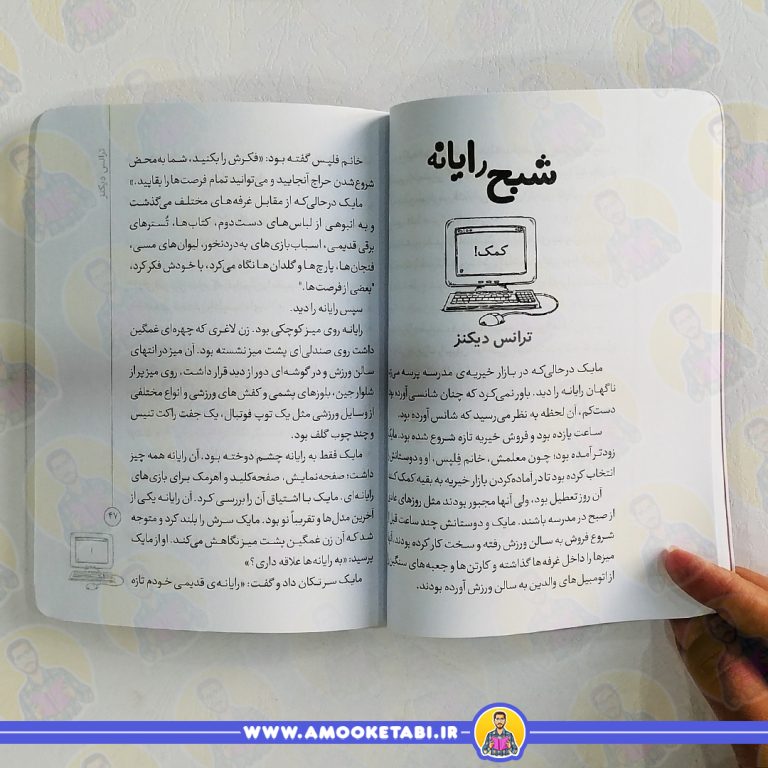 شبح رایانه
کمک!
ترانس دیکنز
مایک درحالی‌که در بازار خیریه‌ی مدرسه پرسه می‌زد
ناگهان رایانه را دید. باور نمی‌کرد که چنان شانسی آورده بود
دست‌کم، آن لحظه به نظر می‌رسید که شانس آورده بود.
ساعت یازده بود و فروش خیریه تازه شروع شده بود. مایک
زودتر آمده بود؛ چون معلمش، خانم فلپس، او و دوستانش
انتخاب کرده بود تا در آماده‌کردن بازار خیریه به بقیه کمک
آن روز تعطیل بود، ولی آنها مجبور بودند مثل روزهای
از صبح در مدرسه باشند. مایک و دوستانش چند ساعت قبل
شروع فروش به سالن ورزش رفته و سخت کار کرده بودند.
میزها را داخل غرفه‌ها گذاشته و کارتن‌ها و جعبه‌های سنگین
از اتومبیل‌های والدین به سالن ورزش آورده بودند.
ترانس دیکنز
خانم فلپس گفته بود: «فکرش را بکنید، شما به‌محض
شروع‌شدن حراج آنجایید و می‌توانید تمام فرصت‌ها را بقاپید.»
مایک درحالی‌که از مقابل غرفه‌های مختلف می‌گذشت
و به انبوهی از لباس‌های دست‌دوم، کتاب‌ها، تُسترهای
برقی قدیمی، اسباب‌بازی‌های به‌دردنخور، لیوان‌های مسی،
فنجان‌ها، پارچ‌ها و گلدان‌ها نگاه می‌کرد، با خودش فکر کرد،
"بعضی از فرصت‌ها."
سپس رایانه را دید.
رایانه روی میز کوچکی بود. زن لاغری که چهره‌ای غمگین
داشت روی صندلی‌ای پشت میز نشسته بود. آن میز در انتهای
سالن ورزش و در گوشه‌ای دور از دید قرار داشت، روی میز پر از
شلوار جین، بلوزهای پشمی و کفش‌های ورزشی و انواع مختلفی
از وسایل ورزشی مثل یک توپ فوتبال، یک جفت راکت تنیس
و چند چوب گلف بود.
مایک فقط به رایانه چشم دوخته بود. آن رایانه همه چیز
داشت؛ صفحه‌نمایش، صفحه‌کلید و اهرمک برای بازی‌های
رایانه‌ای. مایک با اشتیاق آن را بررسی کرد. آن رایانه یکی از
آخرین مدل‌ها و تقریباً نو بود. مایک سرش را بلند کرد و متوجه
شد که آن زن غمگین پشت میز نگاهش می‌کند. او از مایک
پرسید: «به رایانه‌ها علاقه داری؟»
مایک سر تکان داد و گفت: «رایانه‌ی قدیمی خودم تازه
۴۷
WWW.AMOOKETABI.IR